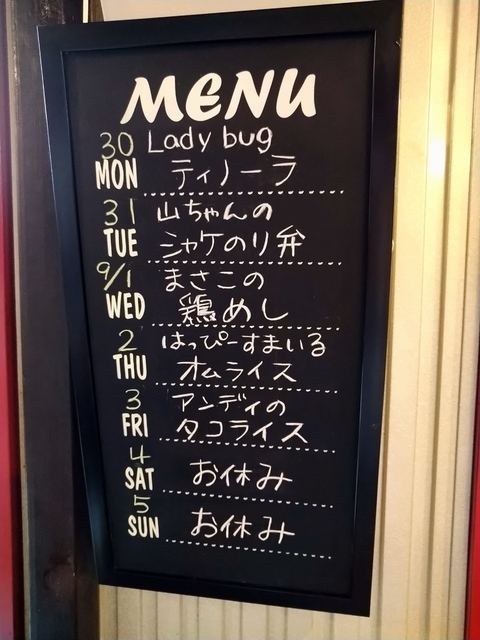 MENU
30 Lady bug
MON ティノーラ
31 山ちゃんの
TUE シャケのり弁
9/1 まさこの
WED 鶏めし
2 はっぴーすまいる
THU オムライス
3 アンディの
FRI タコライス
4
SAT お休み
5
SUN お休み